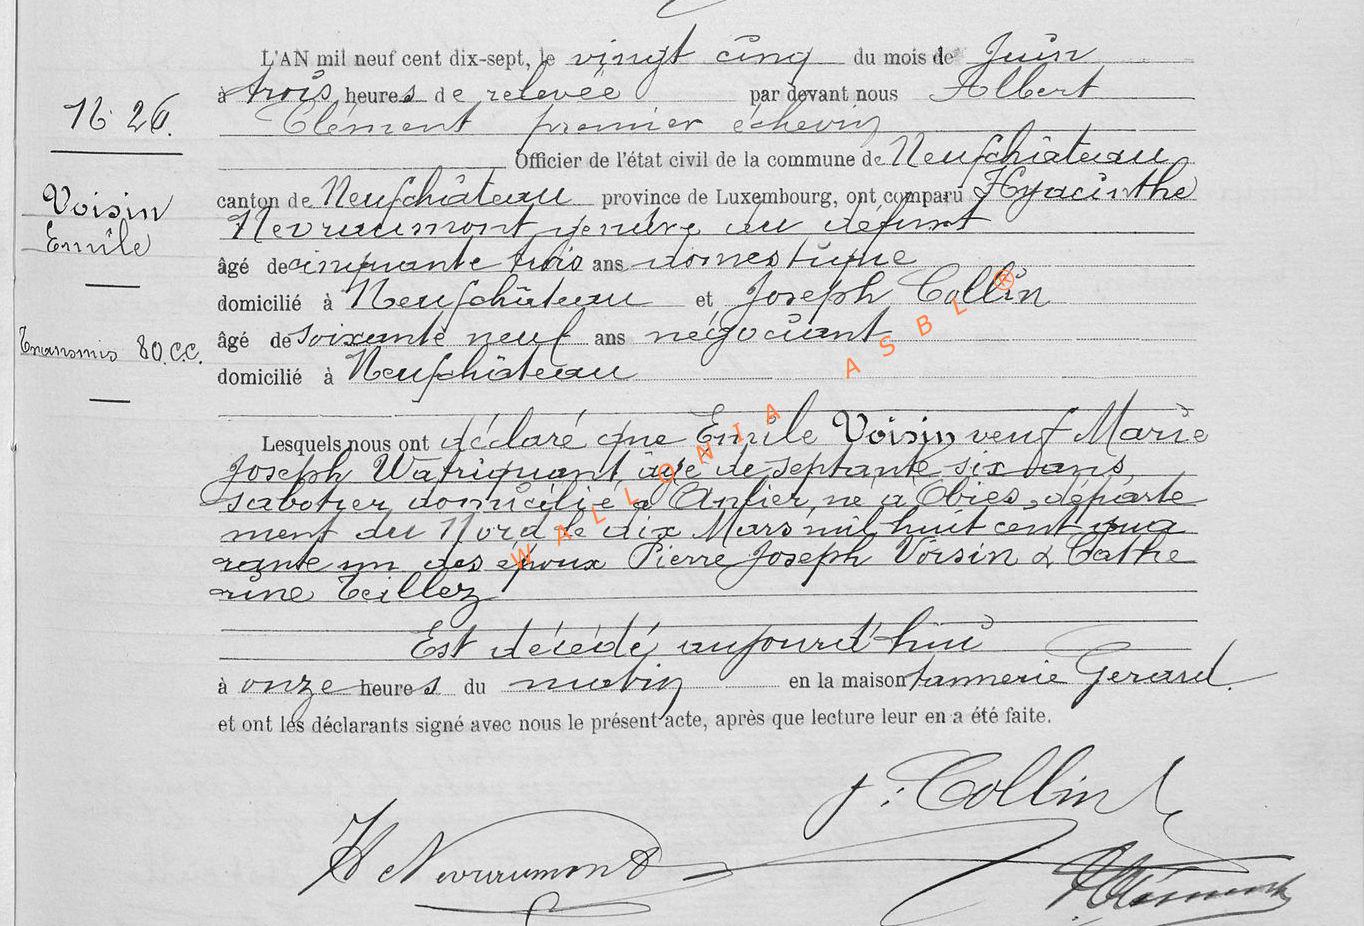 L'AN mil neuf cent dix-sept, le vingt cinq du mois de Juin
à trois heures de relevée par devant nous Albert
Clément premier échevin
Officier de l'état civil de la commune de Neufchâteau
canton de Neufchâteau province de Luxembourg, ont comparu Hyacinthe
Nevraumont gendre du défunt
âgé de cinquante trois ans domestique
domicilié à Neufchâteau et Joseph Collin
âgé de soixante neuf ans négociant
domicilié à Neufchâteau
Lesquels nous ont déclaré que Emile Voisin veuf Marie
Joseph Watriquant âgé de septante six ans
sabotier domicilié à Anlier, né à Obies, départe
ment du Nord le dix Mars mil huit cent qua
rante un des époux Pierre Joseph Voisin & Cathe
rine Teillez
Est décédé aujourd'hui
à onze heures du matin en la maison tannerie Gerard.
et ont les déclarants signé avec nous le présent acte, après que lecture leur en a été faite.
J. Collin
H Nevraumont
A Clément
16. 26.
Voisin
Emile
Transmis 80.C.C.
WALLONIA ASBL ®